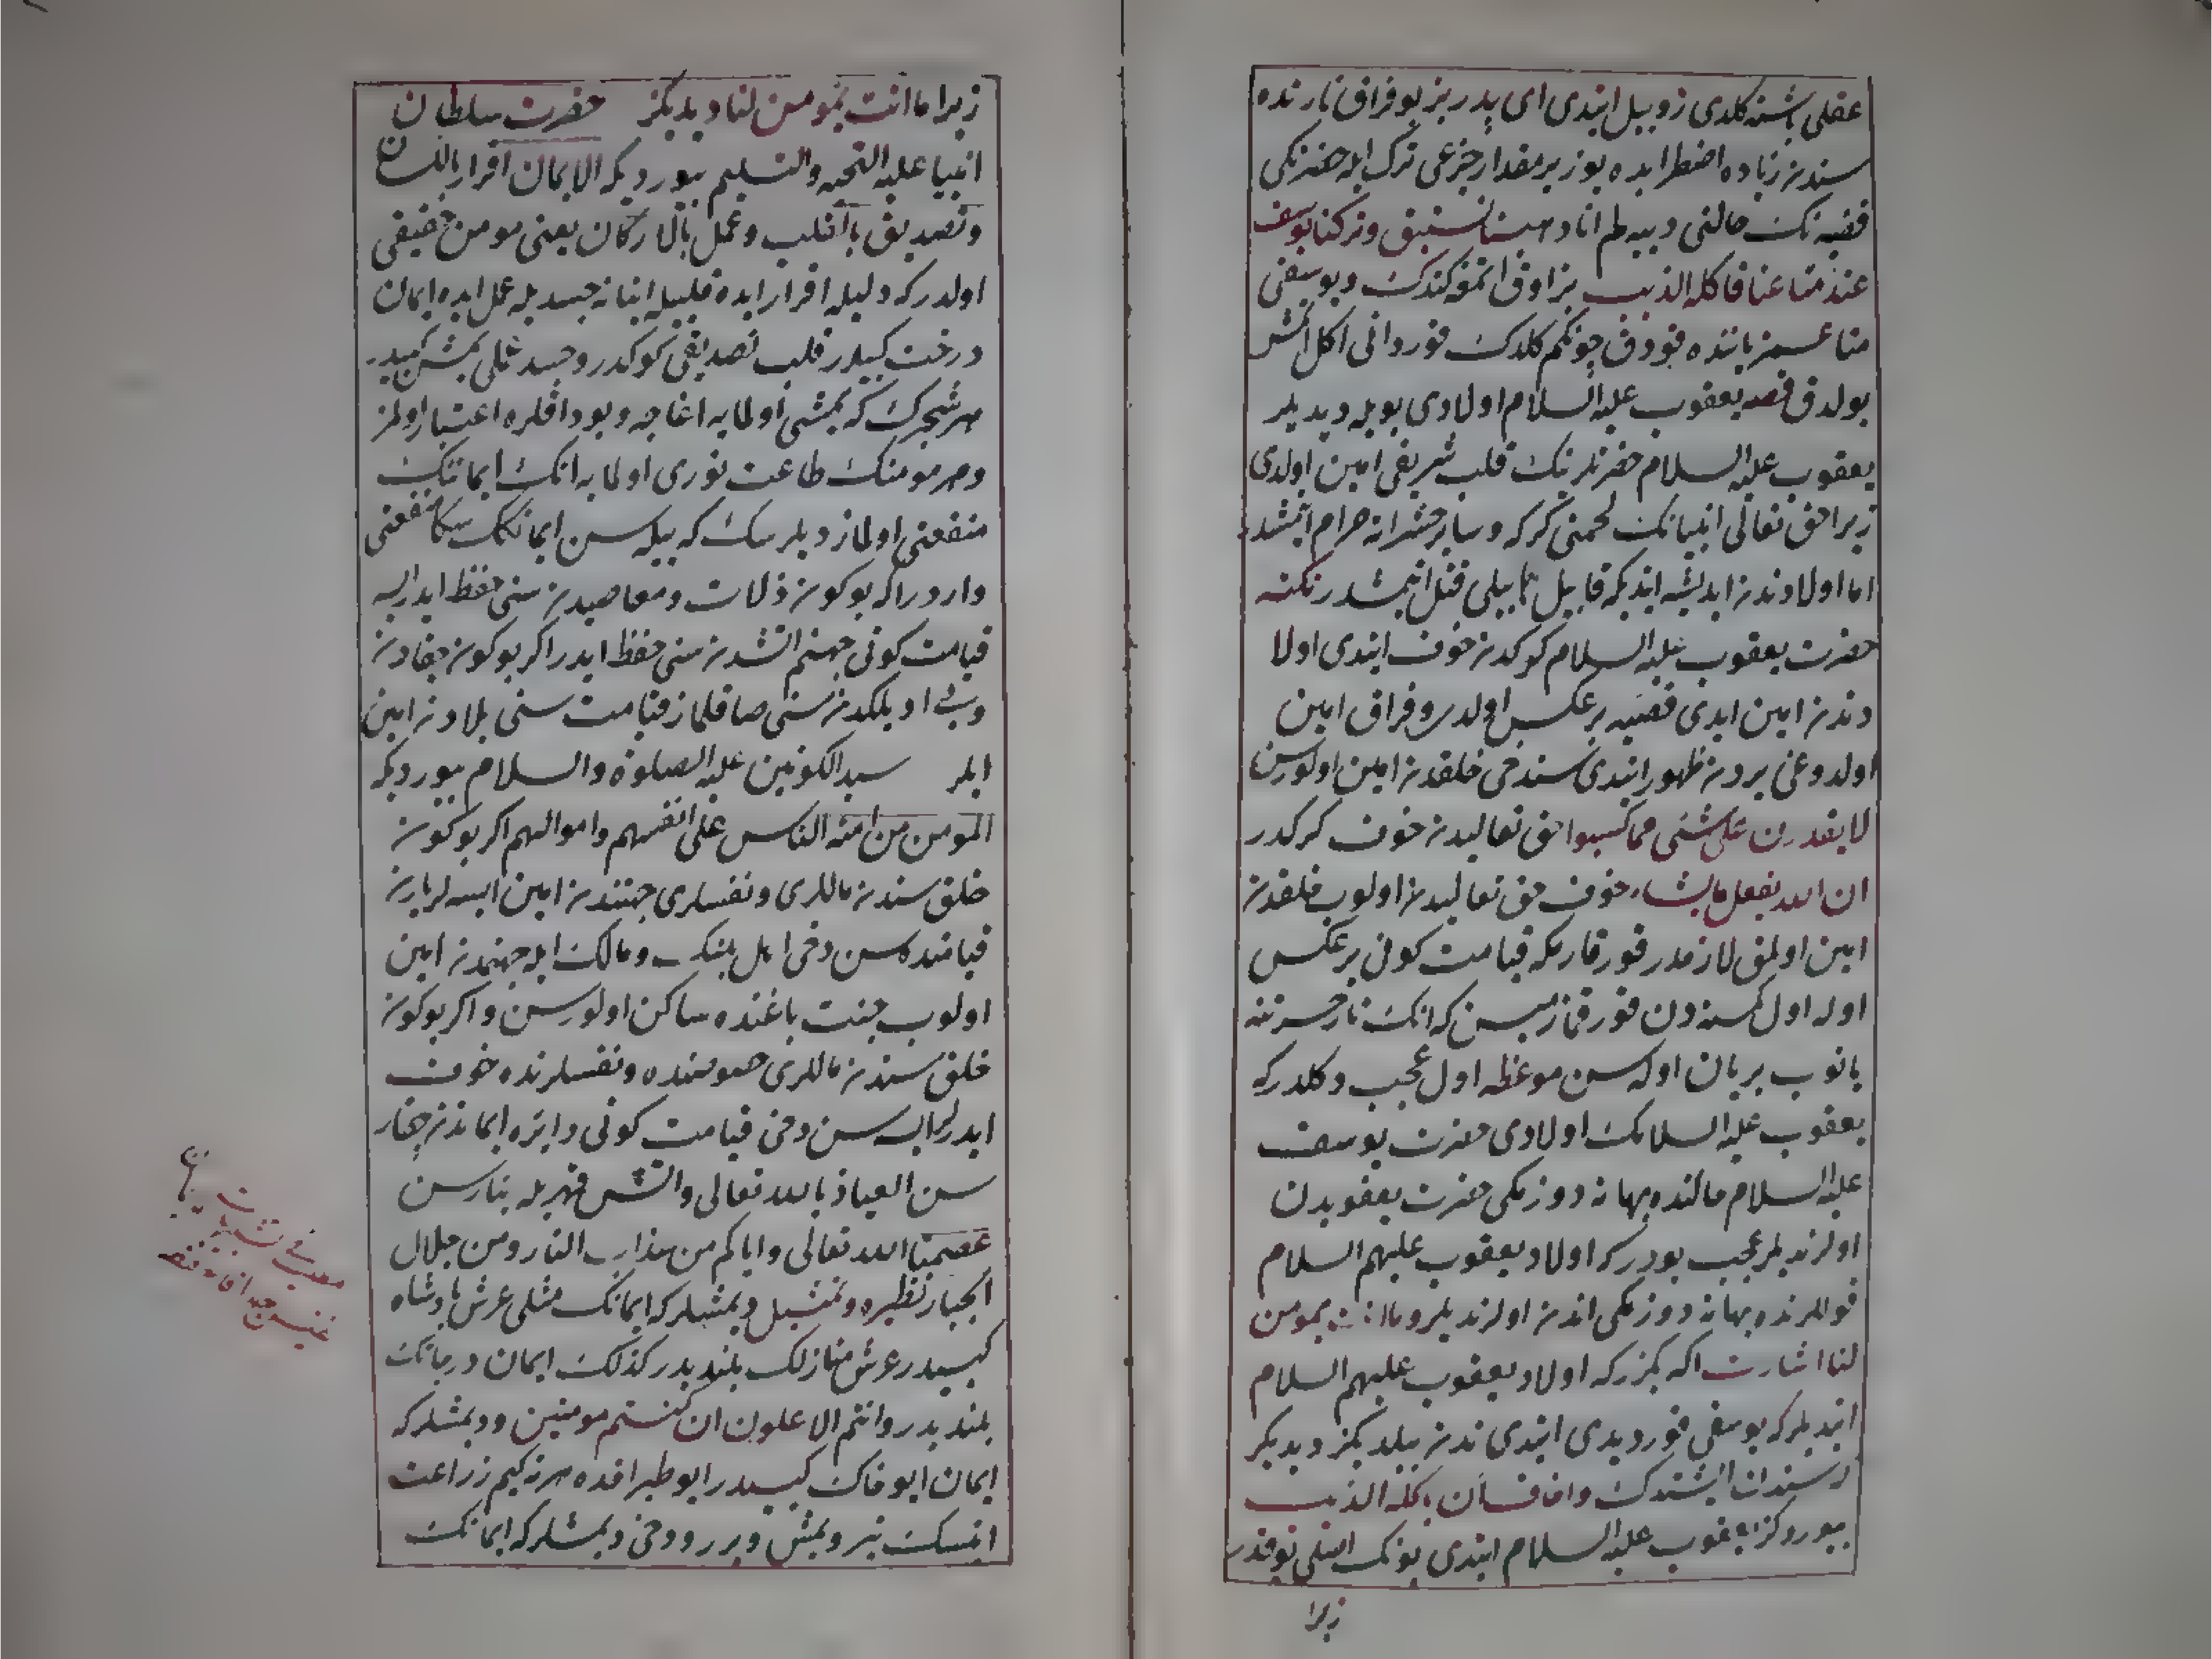 عقلی باشنه کلدی روبیل ایتدی ای پدر بز بو فراق نارنده
سندن زیاده اضطرابده یوز بر مقدار جزعی ترک ایله حضرتکی
قضیه نک حالنی دییه لم انا ذهبنا نستبق وترکنا یوسف
عند متاعنا فاکله الذیب بز اوق اتمغه کندک ویوسفی
متاعمز یاننده قودق چونکم کلدک قورد انی اکل اتمش
بولدق قصه یعقوب علیه السلام اولادی بویله دیدیلر
یعقوب علیه السلام حضرتلرینک قلب شریفی امین اولدی
زیرا حق تعالی انبیانک لحمنی کرکه وسایر حشراته حرام اتمشدر
اما اولادندن اندیشه ایتدیکه قابیل هابیلی قتل اتمشدر نکته
حضرت یعقوب علیه السلام کرکدن خوف ایتدی اولا
دندن امین ایدی قضیه بر عکس اولدی وفراق امین
اولدوغی یردن ظهور ایتدی سن دخی خلقدن امین اولورسن
لا یقدرون علی شئی مما کسبوا حق تعالیدن خوف کرکدر
ان الله یفعل ما یشاء خوف حق تعالیدن اولوب خلقدن
امین اولمق لازمدر قورقارمکه قیامت کونی بر عکس
اوله اول کمسنه دن قورقمازمیسن که انک نار حسرتنه
یانوب بریان اوله سن موعظه اول عجب دکلدرکه
یعقوب علیه السلامک اولادی حضرت یوسف
علیه السلام حالنده بهانه دوزمکی حضرت یعقوبدن
اوکرندیلر عجب بودرکه اولاد یعقوب علیهم السلام
قوللرنده بهانه دوزمکی اندن اوکرندیلر وما انت بمومن
لنا اشارت اکه بکزرکه اولاد یعقوب علیهم السلام
ایتدیلرکه یوسفی قورد یدی ایتدی ندن بیلدیکز دیدیلر
سندن ایشتدک واخاف ان یاکله الذیب
بیوردکز یعقوب علیه السلام ایتدی بونک اصلی یوقدر
زیرا
زیرا ما انت بمومن لنا دیدیکز حضرت سلطان
انبیا علیه التحیه والتسلیم بیوردیکه الایمان اقرار باللسان
وتصدیق بالقلب وعمل بالارکان یعنی مومن حقیقی
اولدرکه دلیله اقرار ایده قلبیله اینانه جسدیله عمل ایده ایمان
درخت کبیدر قلب تصدیقی کوکدر وجسد عملی یمش کبیدر
هر شجرک که یمشی اولمایه اغاجه وبوداقلره اعتبار اولمز
وهر مومنک طاعت نوری اولمایه انک ایماننک
منفعتی اولماز دیلرسک که بیله سن ایمانکک سکا منفعتی
واردر اکر بوکون ذلات ومعاصیدن سنی حفظ ایدرایسه
قیامت کونی جهنم اتشدن سنی حفظ ایدر اکر بوکون جفادن
سنی صاقلماز قیامت سنی بلادن امین
ایلر سید الکونین علیه الصلوة والسلام بیوردیکه
المومن من امنه الناس علی انفسهم واموالهم اکر بوکون
خلق سندن ماللری ونفسلری جهتندن امین ایسه لر یارین
قیامتده سن دخی ومالک ایله جهنمدن امین
اولوب جنت باغنده ساکن اولورسن واکر بوکون
خلق سندن ماللری خصوصنده ونفسلرنده خوف
ایدرلرایسه سن دخی قیامت کونی دایره ایماندن چقار
سن العیاذ بالله تعالی واتش قهریله ینارسن
عصمنا الله تعالی وایاکم من عذاب النار ومن جلال
الجبار نظیره وتمثیل دیمشلرکه ایمانک مثلی عرش پادشاه
کبیدر عرش منازلک بلندیدر کذلک ایمان درجاتک
بلندیدر وانتم الاعلون ان کنتم مومنین ودیمشلرکه
ایمان ایو خاک کبیدر ایو طپراقده هر نه کیم زراعت
اتمسک بتر ویمش ویرر ودخی دیمشلرکه ایمانک